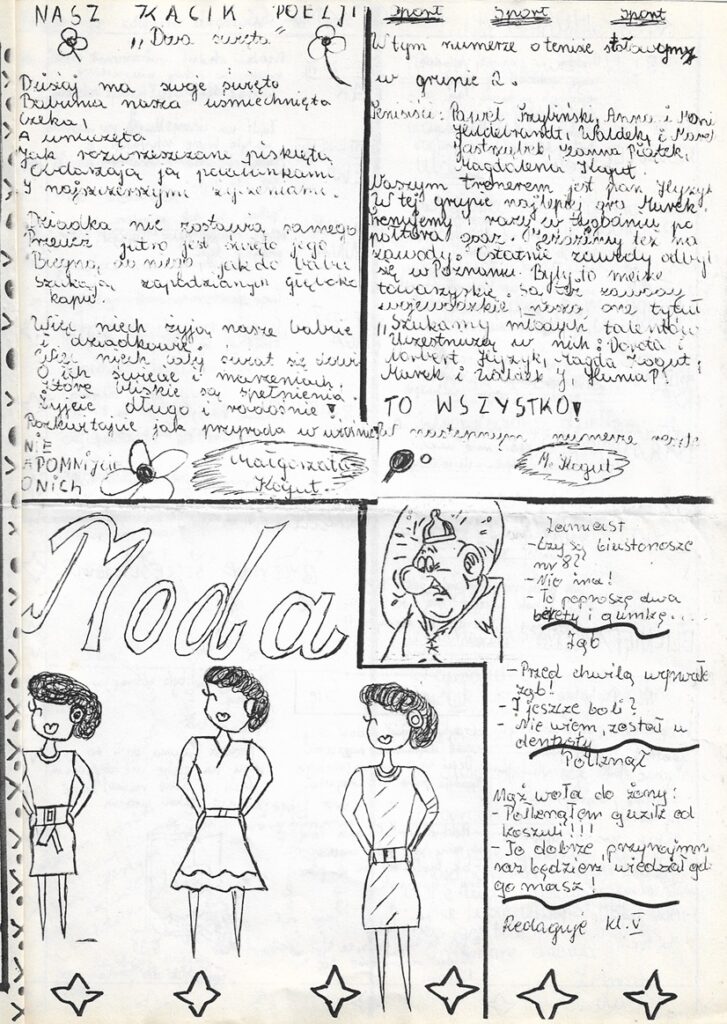 NASZ KĄCIK POEZJI
"Dwa święta"
Dzisiaj ma swoje święto
Babunia nasza uśmiechnięta
Czeka!
A wnuczęta
Jak rozwrzeszczane pisklęta
Obdarzają ją pocałunkami
I najszczerszymi życzeniami.
Dziadka nie zostawia samego
Przecież jutro jest święto jego
Biegną do niego, jak do babci
Szukają zapodzianych
kapci.
Więc niech żyją nasze babcie
i dziadkowie!
Więc niech cały świat się dowie
O ich święcie i marzeniach,
Które bliskie są spełnienia.
Żyjcie długo i radośnie!
Rozkwitajcie jak przyroda w wiośnie
NIE
ZAPOMNIJCIE
O NICH
Małgorzata
Kogut
Sport Sport Sport
W tym numerze o tenisie stołowym
w grupie 2.
Tenisiści: Paweł Grzybiński, Anna i
Hildebrandt, Waldek i Marek
Jastrzębek, Żanna Piątek,
Magdalena Kogut.
Naszym trenerem jest pan Hyzyk
W tej grupie najlepiej gra Marek.
Trenujemy razy w tygodniu po
półtora godz. Jeździmy też na
zawody. Ostatnie zawody odbyły
się w Poznaniu. Były to mecze
towarzyskie. Są też zawody
wojewódzkie noszą one tytuł
"Szukamy młodych talentów
Uczestniczą w nich: Dorota i
Norbert Hyzyk, Magda Kogut,
Marek i Waldek J. Hania P!
TO WSZYSTKO!
W następnym numerze
M. Kogut
Moda
Zamiast
- Czy są biustonosze
nr 8?
- Nie ma!
- To poproszę dwa
berety i gumkę....
Ząb
- Przed chwilą wyrwałem
ząb!
- I jeszcze boli?
- Nie wiem, został u
dentysty
Połknął
Mąż woła do żony:
- Połknąłem guzik od
koszuli!!!
- To dobrze, przynajmniej
raz będziesz wiedział gdzie
go masz!
Redaguje kl. V